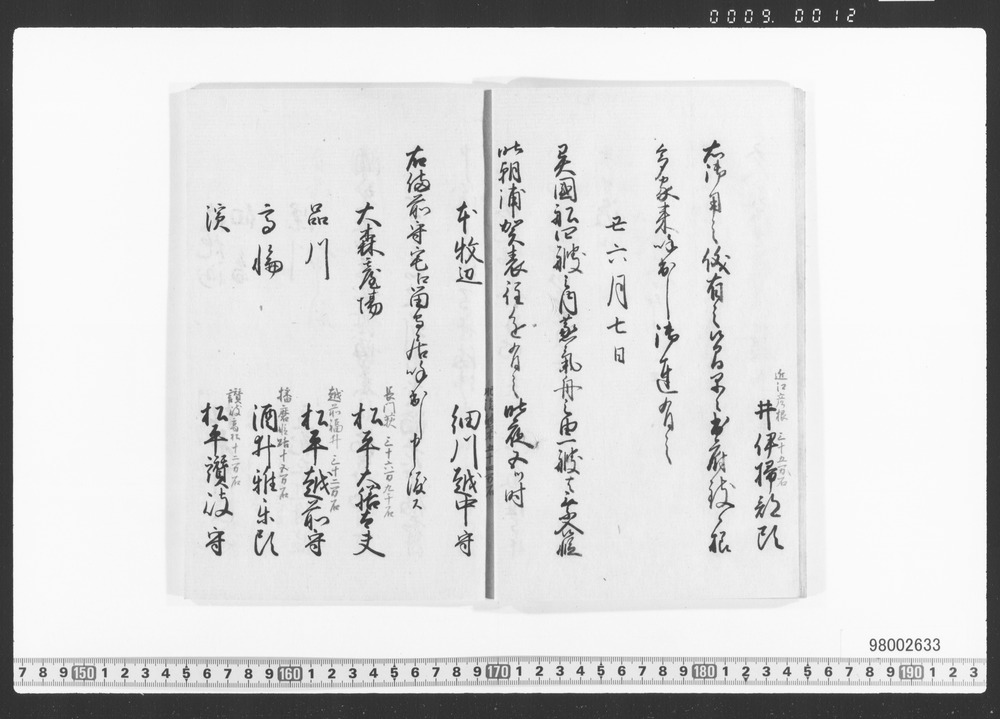 0009. 0012
近江彦根 三十五万石
井伊掃部頭
右御用之儀有之候間早々出府致候様
家来呼出し御達有之
廿六月七日
異國船四艘之内蒸氣舟之由一艘
此朝浦賀表往還有之此夜五ツ時
本牧辺 細川越中守
右備前守宅江留守居呼出し申渡ス
長門萩 三十六万九千石
大森塲 松平大膳大夫
越前福井 三十二万石
品川 松平越前守
播磨姫路 十五万石
高輪 酒井雅楽頭
讃岐高松 十二万石
濱 松平讃岐守
98002633
7 8 9 150 1 2 3 4 5 6 7 8 9 160 1 2 3 4 5 6 7 8 9 170 1 2 3 4 5 6 7 8 9 180 1 2 3 4 5 6 7 8 9 190 1 2 3